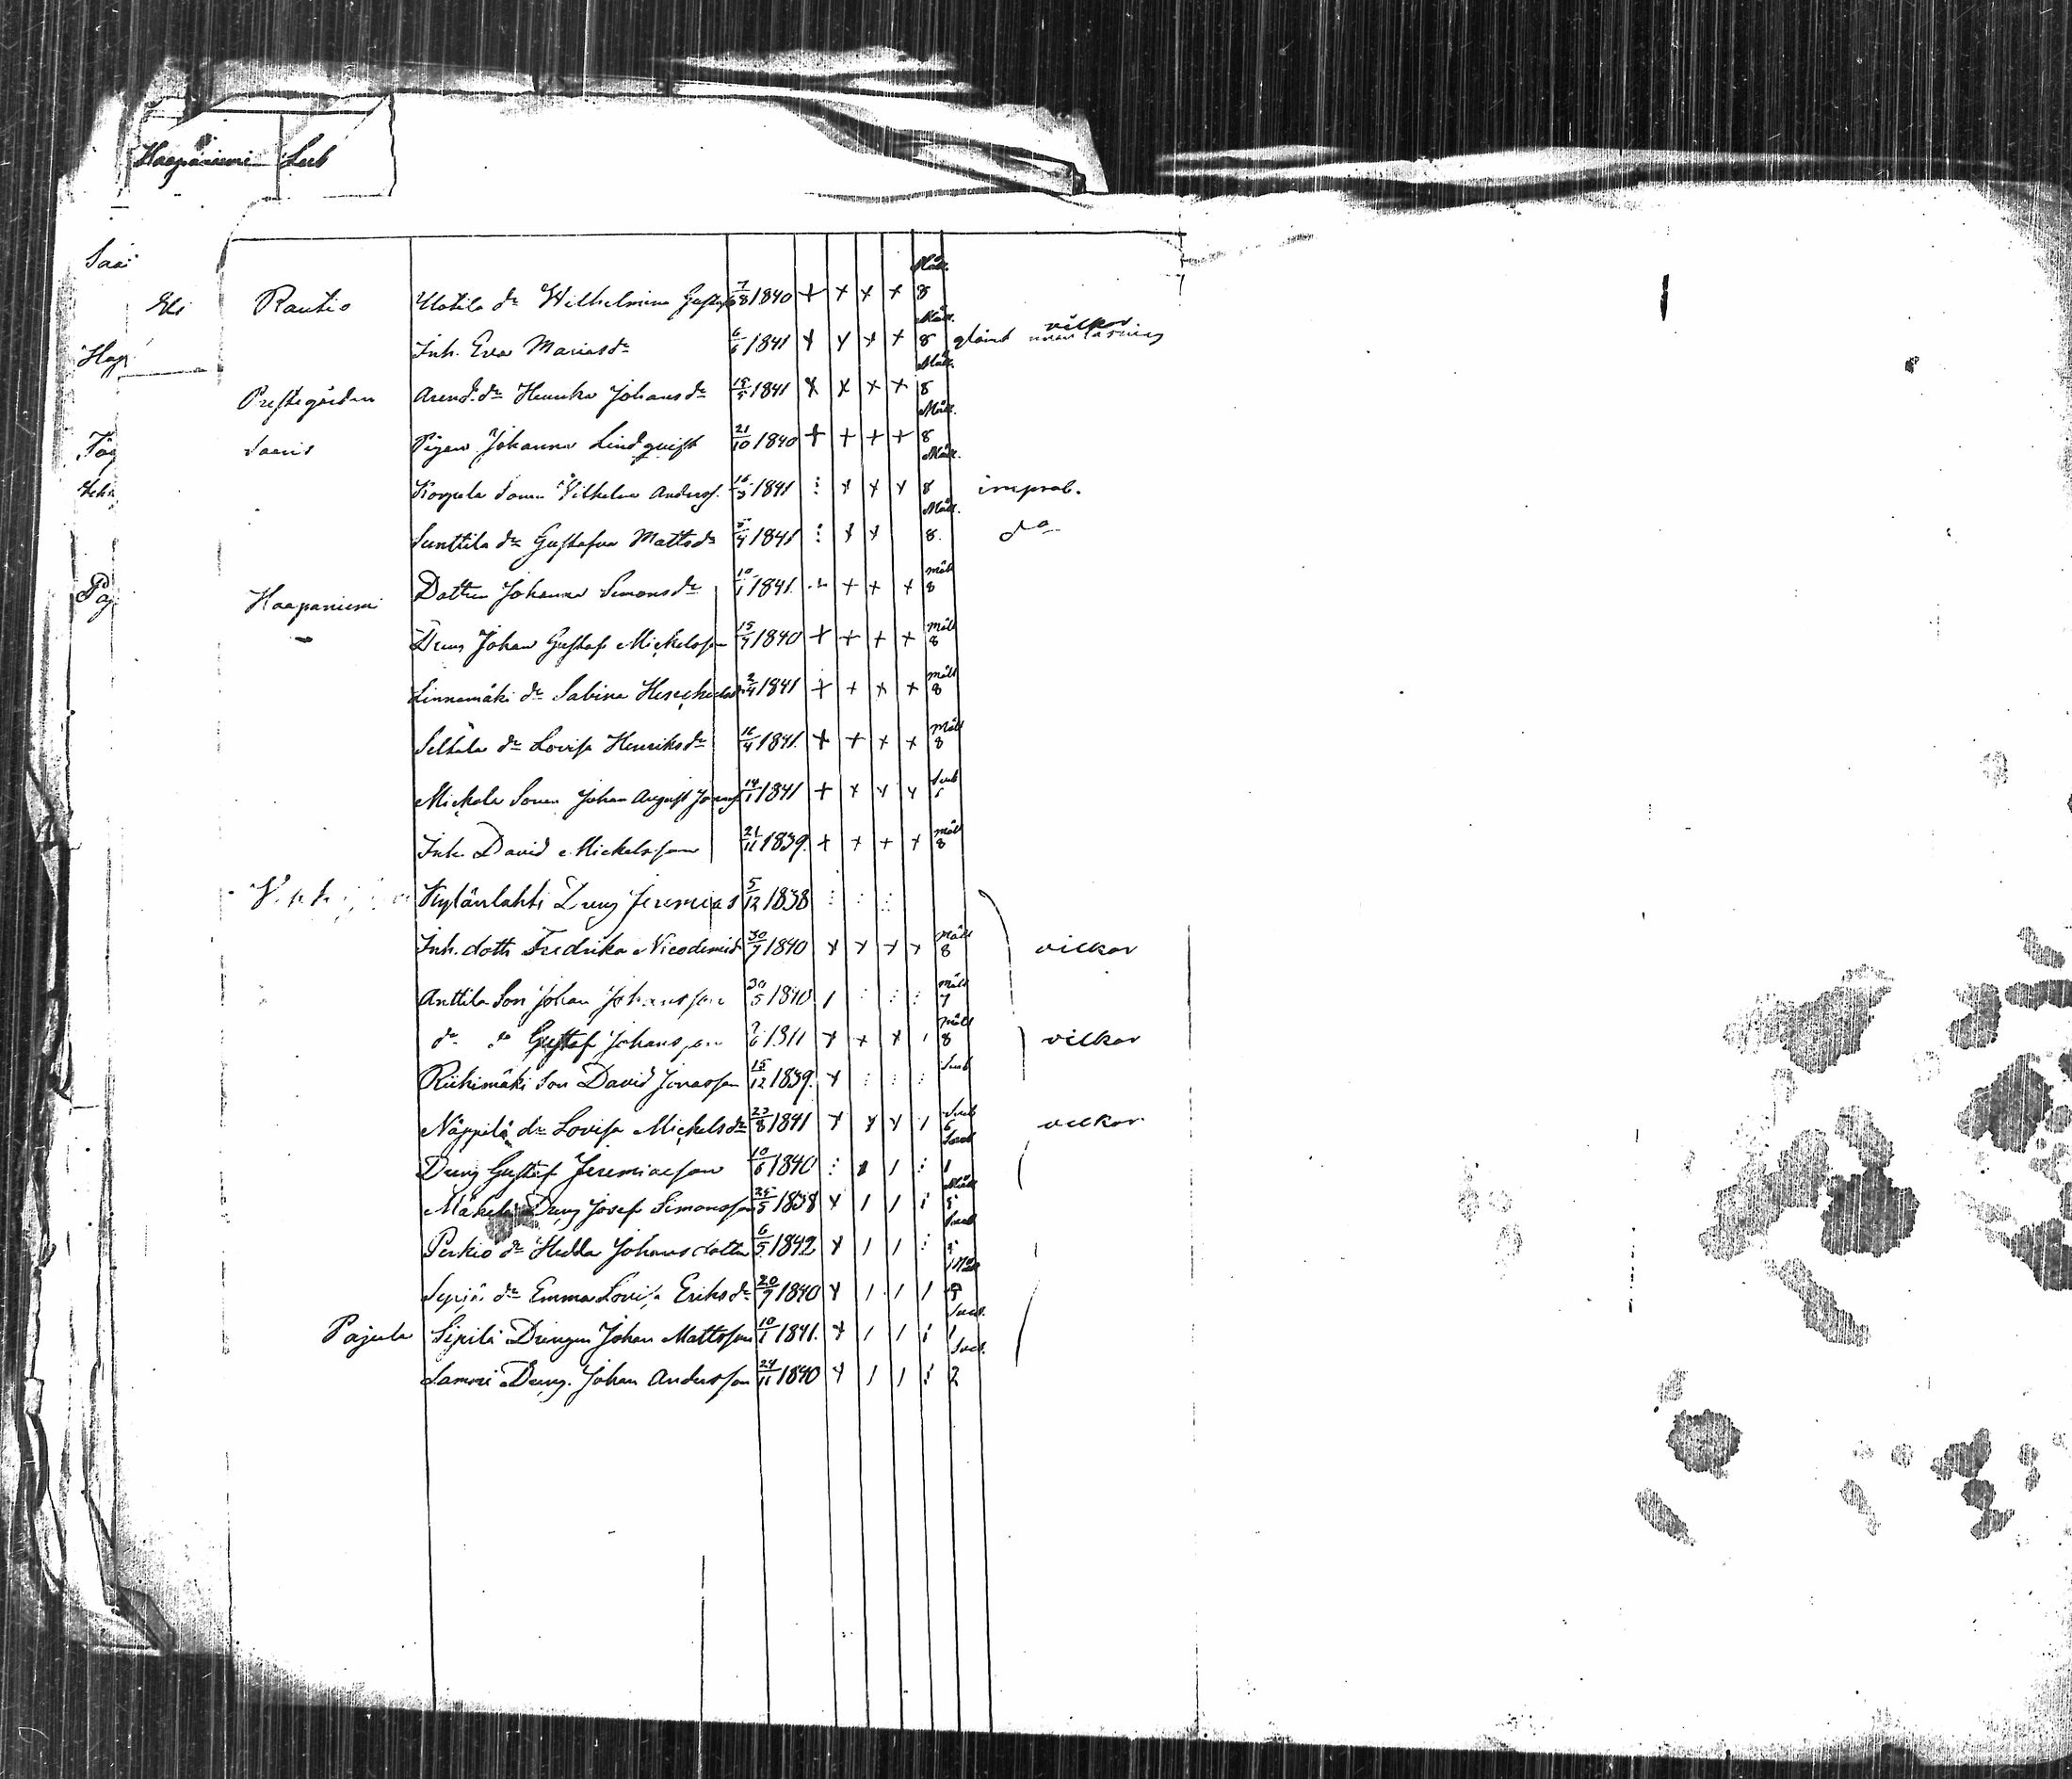 Haapaniemi Sub
Saa
Eli
Hap
Pa
Mått.
Rautio Uotila dr Wilhelmina 7/8 1840 + + + + 8
Mått.
Inh. Eva Mariasdr 6/6 1841 + + + + 8 vilkor
Mått.
Prestegården Arend. dr Henrika Johansdr 15/5 1841 + + + + 8
Mått.
Saaris Pigan Johanna Lindquist 21/10 1840 + + + + 8
Mått.
Korpela Sonen Vilhelm Anderss. 16/3 1841 ⋮ + + + 8 improb.
Mått.
Sunttila dr Gustafva Mattsdr 5/4 1841 ⋮ + + 8. do
Haapaniemi Dottren Johanna Simonsdr 10/1 1841. + + + Mått 8
Dreng Johan Gustaf Mickelsson 15/7 1840 + + + + Mått 8
Linnamäki dr Sabina 2/4 1841 + + + + Mått 8
Seikala dr Lovisa Henriksdr 16/4 1841. + + + + Mått 8
Mickola Sonen Johan August 14/1 1841 + + + + Sub
Inh. David Mickelsson 21/11 1839. + + + + Mått 8
Kylänlahti Dreng Jeremias 5/12 1838 ⋮ ⋮ ⋮
Inh. dottr Fredrika Nicodemid 30/7 1840 + + + + Mått 8 vilkor
Anttila Son Johan Johansson 30/5 1840 / ⋮ ⋮ ⋮ Mått 7
dr do Gustaf Johansson + + + / Mått 8 vilkor
Riihimäki Son David Jonasson 15/12 1839. + ⋮ ⋮ ⋮ Sub
Näppilä dr Lovisa Mickelsdr 23/8 1841 + + + / Sub 6 vilkor
Svag
Dreng Gustaf Jeremiasson 10/6 1840 ⋮ / / ⋮ 1
Mått
Mäkelä Dreng Josef Simonsson 25/5 1838 + / / ⋮ 8
Svag
Perkiö dr Hedda Johansdotter 6/5 1842 + / / ⋮
Mått
Syrjä dr Emma Lovisa Eriksdr 20/7 1840 + / / / 8
Svag.
Pajula Sipilä Drengen Johan Mattsson 10/1 1841. + / / ⋮ 1
Svag.
Sammi Dreng. Johan Andersson 24/11 1840 + / / ⋮ 2